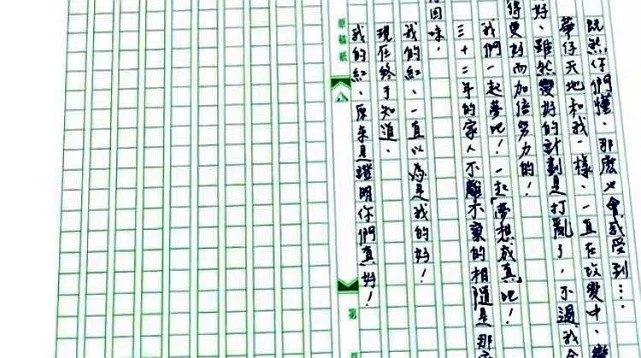 既然你們懂，那麼也會感受到…
華仔天地和我一樣，一直在改變中，變
好，雖然變好的計劃是打亂了，不過我
得更好而加倍努力的！
我們一起夢吧！一起「夢想成真」吧！
三十二年的家人不離不棄的相隨是那
回味，
我的紅，一直以為是我的好！
現在終于知道，
我的紅，原來是證明你們真好！
原稿紙
第